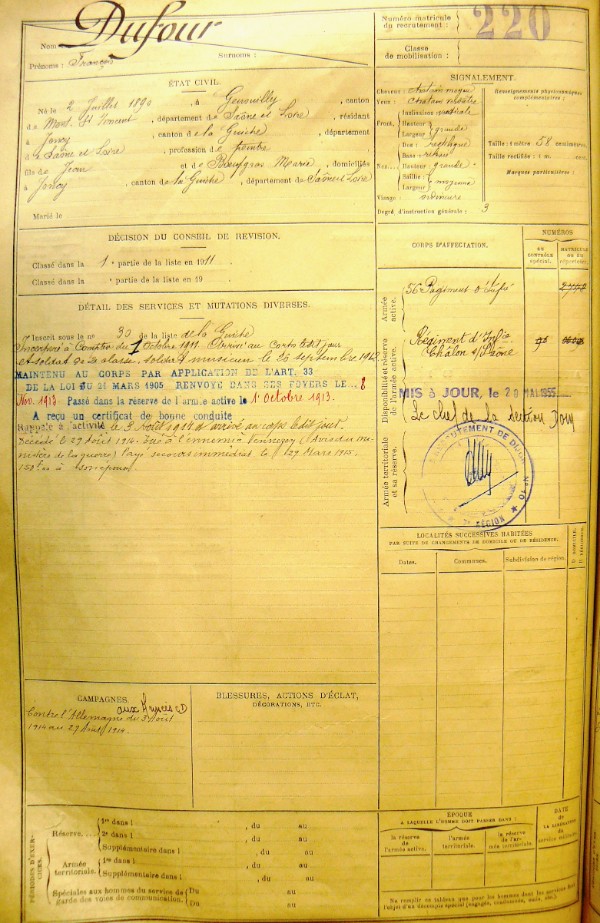 Nom Dufour
Prénoms : François Surnoms :
Numéro matricule
du recrutement :
220
Classe
de mobilisation :
ÉTAT CIVIL.
Né le 2 Juillet 1890, à Genouilly, canton
de Mont St Vincent, département de Saône et Loire, résidant
à Joncy, canton de la Guiche, département
de Saône et Loire, profession de peintre
fils de Jean et de Marie, domiciliés
à Joncy, canton de la Guiche, département de Saône et Loire
Marié le
SIGNALEMENT.
Cheveux : châtain moyen
Yeux :
Front. Inclinaison verticale
Hauteur
Largeur grande
Nez. Dos : rectiligne
Base :
Hauteur : grande
Saillie :
Largeur moyenne
Visage :
Degré d'instruction générale : 3
Renseignements physionomiques
complémentaires :
Taille : 1 mètre 58 centimètres.
Taille rectifiée : 1 m. cent.
Marques particulières :
DÉCISION DU CONSEIL DE REVISION.
Classé dans la 1e partie de la liste en 1911
Classé dans la partie de la liste en 19
DÉTAIL DES SERVICES ET MUTATIONS DIVERSES.
Inscrit sous le no 30 de la liste de la Guiche
Incorporé à compter du 1 octobre 1911. Arrivé au corps le dit jour
et soldat de 2e classe. soldat musicien le 23 septembre 1912
MAINTENU AU CORPS PAR APPLICATION DE L'ART. 33
DE LA LOI DU 21 MARS 1905. RENVOYÉ DANS SES FOYERS LE 8
Nov. 1913. Passé dans la réserve de l'armée active le 1er octobre 1913.
A reçu un certificat de bonne conduite
Rappelé à l'activité le 3 août 1914 arrivé au corps le dit jour.
Décédé le 29 août 1914. Tué à l'ennemi (Avis du mi-
nistère de la guerre) Payé secours immédiat le 29 Mars 1915.
150 f à
CORPS D'AFFECTATION.
NUMÉROS
AU
CONTRÔLE
spécial.
MATRICULE
OU DU
répertoire.
Armée
active.
56e Régiment d'Infie
Disponibilité et réserve
de l'armée active.
Régiment d'Infie
Châlon s/Saône
MIS à JOUR, le 20 MAI 1955
Le chef de la section
Armée territoriale
et sa réserve.
RECRUTEMENT DE DIJON N° 10
RÉGION
LOCALITÉS SUCCESSIVES HABITÉES
PAR SUITE DE CHANGEMENTS DE DOMICILE OU DE RÉSIDENCE.
Dates.
Communes.
Subdivision de région.
D. DOMICILE.
R. RÉSIDENCE.
CAMPAGNES.
aux Armées
Contre l'Allemagne du 3 août
1914 au 29 août 1914
BLESSURES, ACTIONS D'ÉCLAT,
DÉCORATIONS, ETC.
PÉRIODES D'EXER-
CICES.
Réserve.
1re dans l , du au
2e dans l , du au
Supplémentaire dans l , du au
Armée
territoriale.
1re dans l , du au
Supplémentaire dans l , du au
Spéciales aux hommes du service de
garde des voies de communication.
Du au
Du au
ÉPOQUE
A LAQUELLE L'HOMME DOIT PASSER DANS :
la réserve
de l'armée active.
l'armée
territoriale.
la réserve
de l'ar-
mée territoriale.
DATE
DE
LA LIBÉRATION
du
service militaire.
Ne remplir ce tableau que pour les hommes dont les services font
l'objet d'un décompte spécial (engagés, omis, etc.)